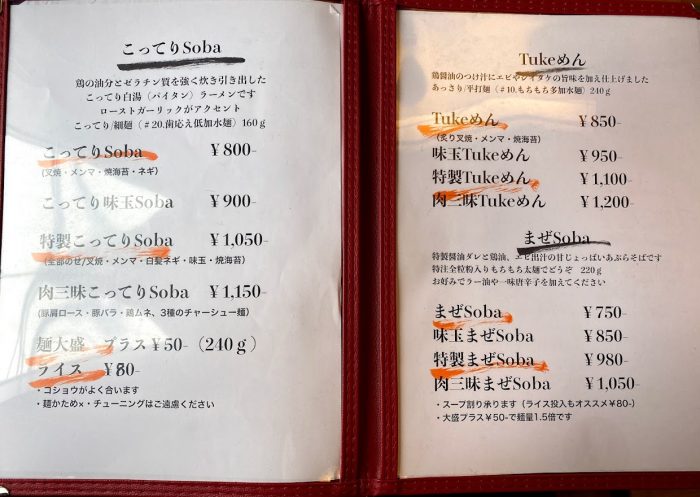 こってりSoba
鶏の油分とゼラチン質を強く炊き引き出した
こってり白湯（パイタン）ラーメンです
ローストガーリックがアクセント
こってり/細麺（＃20.歯応え低加水麺）160ｇ
こってりSoba ￥800-
（叉焼・メンマ・焼海苔・ネギ）
こってり味玉Soba ￥900-
特製こってりSoba ￥1,050-
（全部のせ/叉焼・メンマ・白髪ネギ・味玉・焼海苔）
肉三昧こってりSoba ￥1,150-
（豚肩ロース・豚バラ・鶏ムネ、3種のチャーシュー麺）
麺大盛 プラス￥50-（240ｇ）
ライス ￥80-
・コショウがよく合います
・麺かため×・チューニングはご遠慮ください
Tukeめん
鶏醤油のつけ汁にエビやシイタケの旨味を加え仕上げました
あっさり/平打麺（＃10.もちもち多加水麺）240ｇ
Tukeめん ￥850-
（炙り叉焼・メンマ・焼海苔）
味玉Tukeめん ￥950-
特製Tukeめん ￥1,100-
肉三昧Tukeめん ￥1,200-
まぜSoba
特製醤油ダレと鶏油、エビ出汁の甘じょっぱいあぶらそばです
特注全粒粉入りもちもち太麺でどうぞ 220ｇ
お好みでラー油や一味唐辛子を加えてください
まぜSoba ￥750-
味玉まぜSoba ￥850-
特製まぜSoba ￥980-
肉三昧まぜSoba ￥1,050-
・スープ割り承ります（ライス投入もオススメ￥80-）
・大盛プラス￥50-で麺量1.5倍です